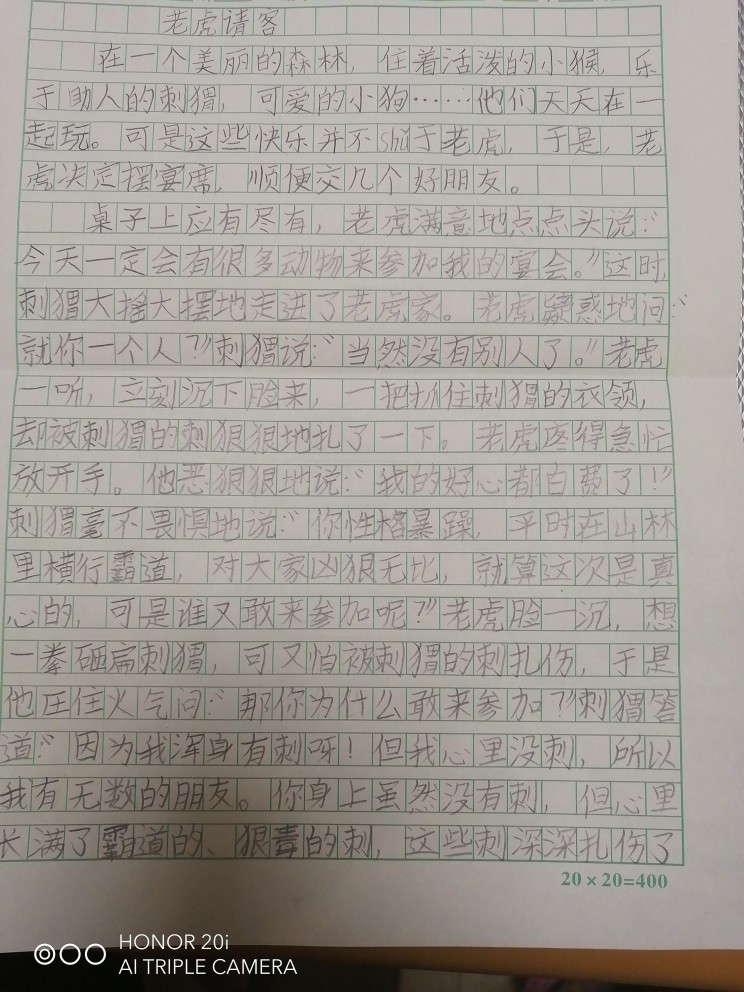 老虎请客
在一个美丽的森林，住着活泼的小猴，乐
于助人的刺猬，可爱的小狗……他们天天在一
起玩。可是这些快乐并不shǔ于老虎，于是，老
虎决定摆宴席，顺便交几个好朋友。
桌子上应有尽有，老虎满意地点点头说：“
今天一定会有很多动物来参加我的宴会。”这时，
刺猬大捨大摆地走进了老虎家。老虎疑惑地问：“
就你一个人？”刺猬说：“当然没有别人了。”老虎
一听，立刻沉下脸来，一把抓住刺猬的衣领，
却被刺猬的刺狠狠地扎了一下。老虎疼得急忙
放开手。他恶狠狠地说：“我的好心都白费了！”
刺猬毫不畏惧地说：“你性格暴躁，平时在山林
里横行霸道，对大家凶狠无比，就算这次是真
心的，可是谁又敢来参加呢？”老虎脸一沉，想
一拳砸扁刺猬，可又怕被刺猬的刺扎伤，于是
他压住火气问：“那你为什么敢来参加？”刺猬答
道：“因为我浑身有刺呀！但我心里没刺，所以
我有无数的朋友。你身上虽然没有刺，但心里
长满了霸道的、狠毒的刺，这些刺深深扎伤了
20×20=400
HONOR 20i
AI TRIPLE CAMERA